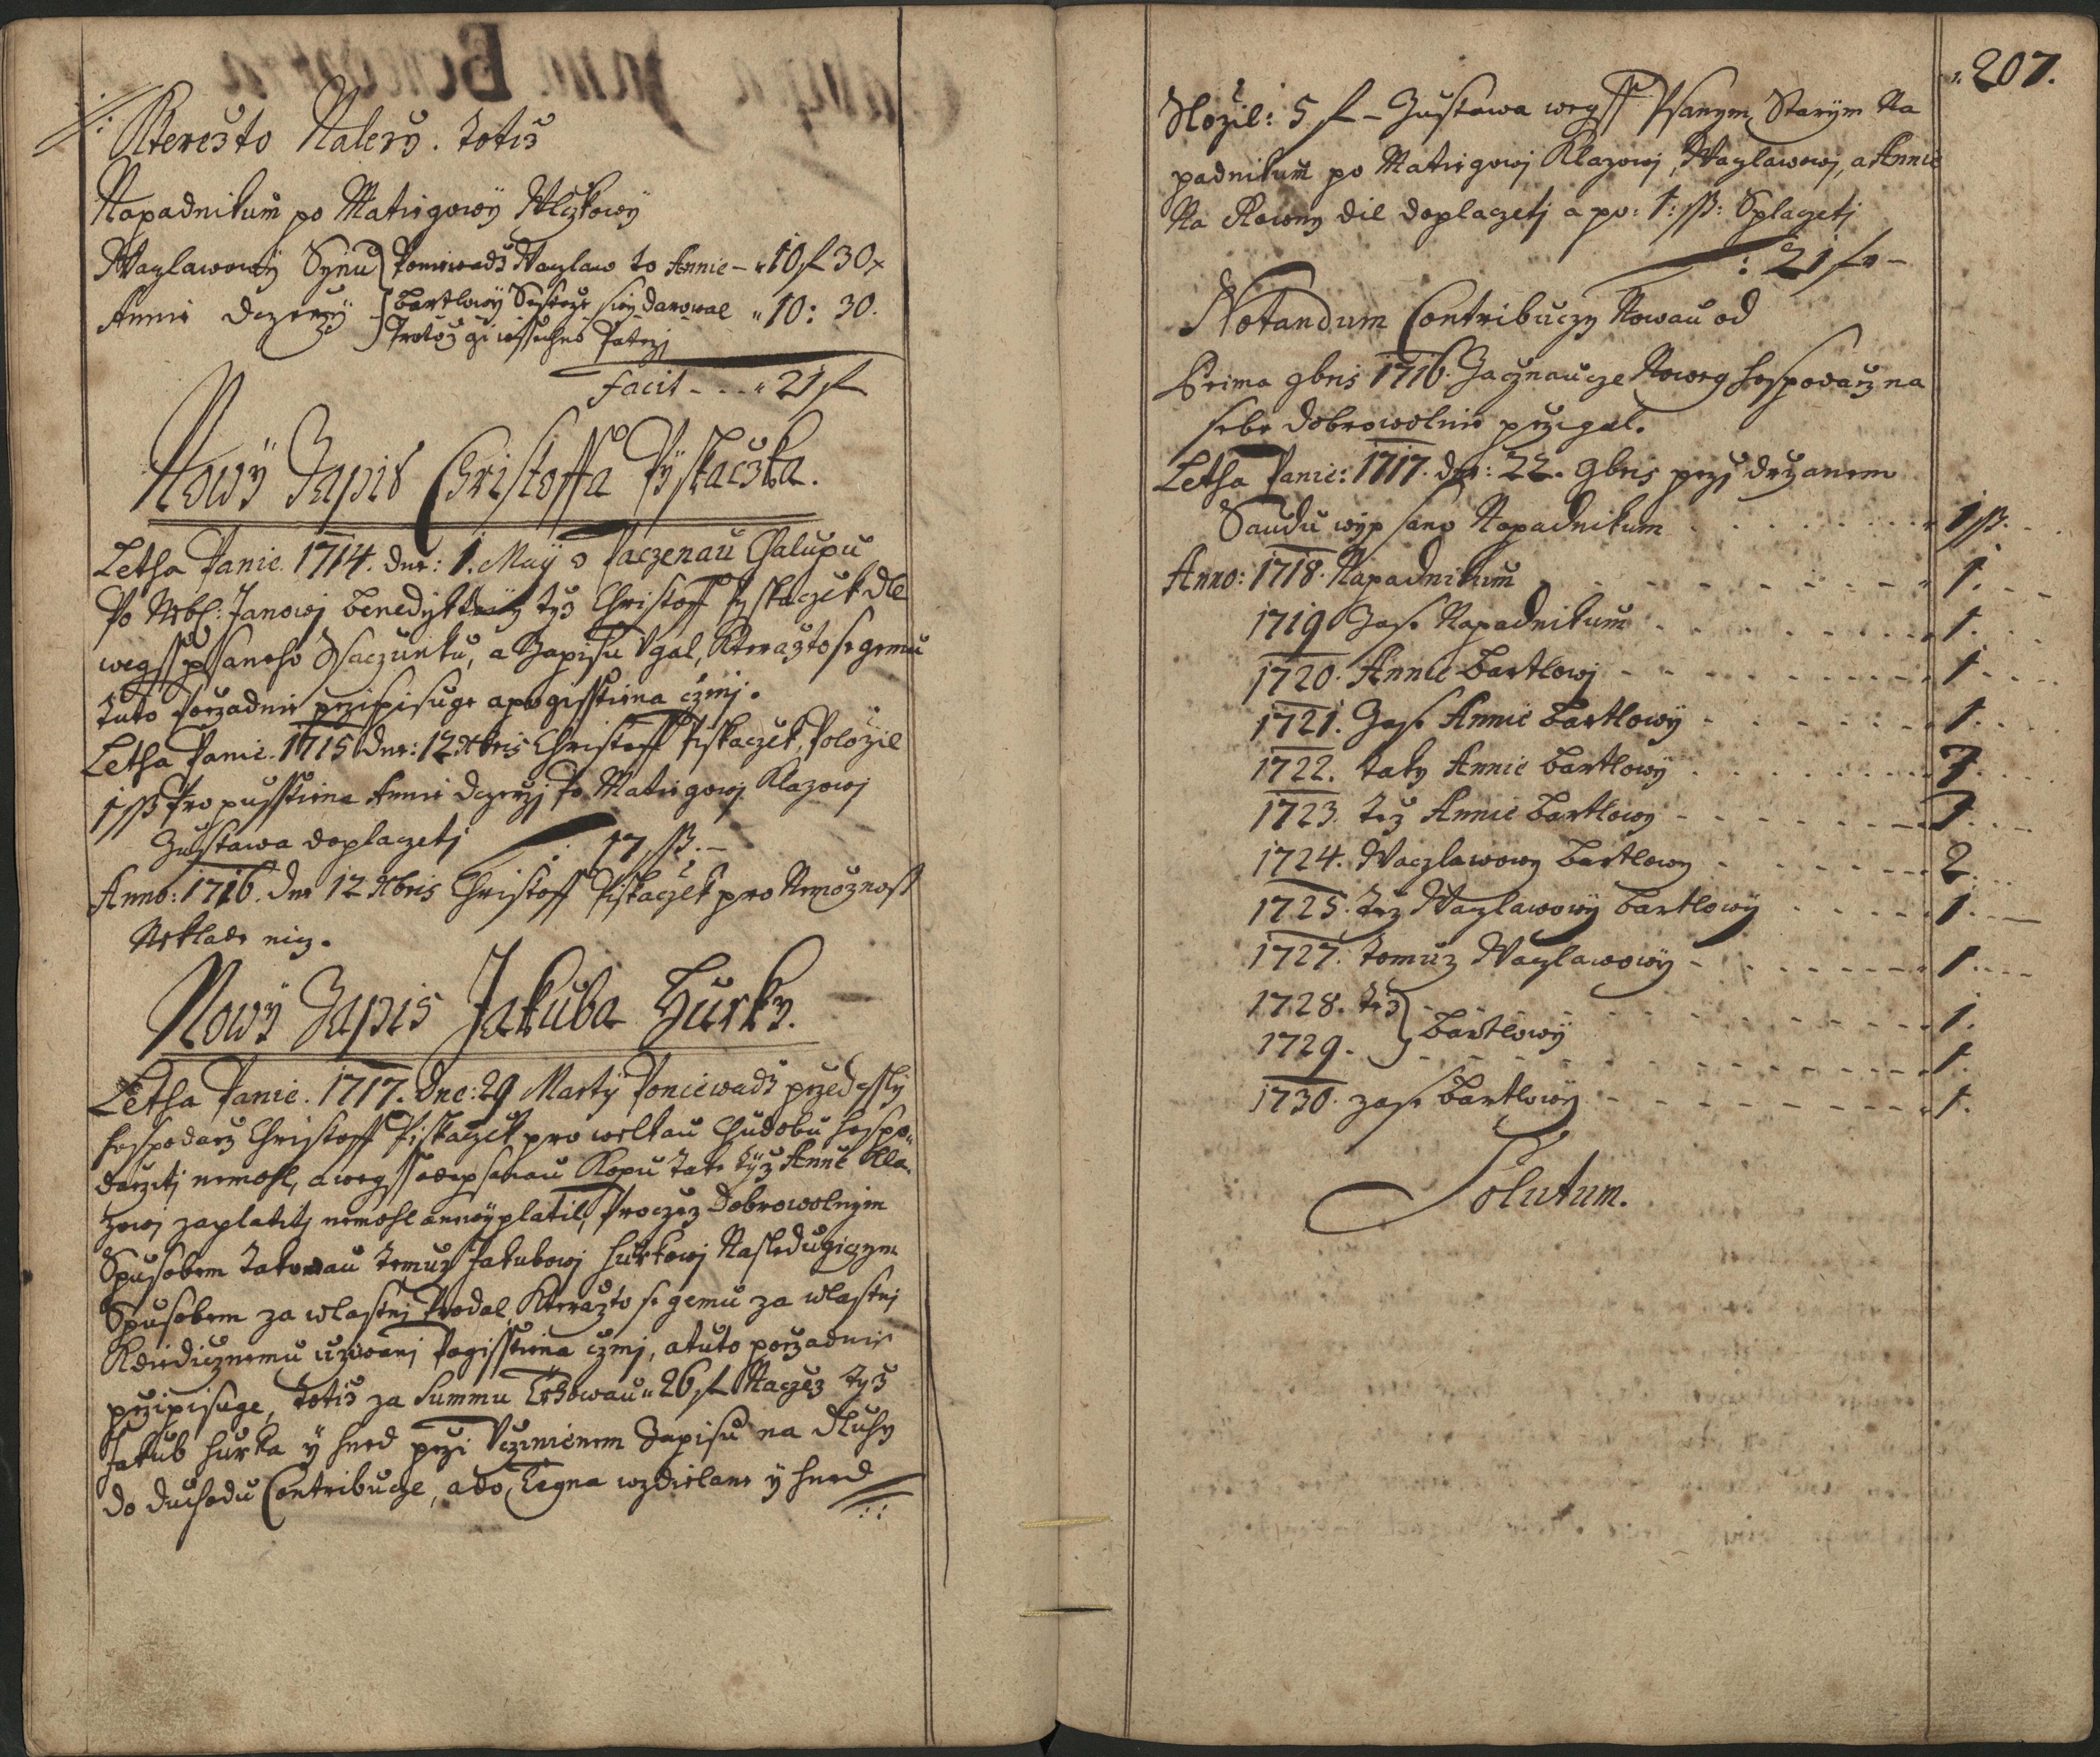 Kteresto Nalezy. totiz
Napadnikum po Matiegowy Klczkowy
Waglawowy Synu Poniewadz Waczlaw to Annie – 10 f 30 x
Annie dczerzy Bartlowy Sestrze swy darowal 10: 30.
Protoz gi wssechno Patrzj
facit - - - 21 f
Nowy Zapis Christoffa Pystaczka.
Letha Panie. 1714. dne: 1. May o Paczenau Chalupu
Po Nebl: Janowj Benedyktowy tyz Christoff Pystaczek dle
wegss psaneho Ssaczunku, a Zapisu Ugal, Kterazto se gemu
tuto Porzadnie przipisuge a pogisstiena czinj.
Letha Panie. 1715 dne: 12 Xbris Christoff Pistaczek, Polozil
1 ß Pro pusstiena Annie dczerzj Po Matiegowj Klazowj
Zustawa doplaczetj 17 ß. –
Anno: 1716. dne 12 Xbris Christoff Pistaczek pro Nemoznost
Neklade nicz.
Nowy Zapis Jakuba Hurky.
Letha Panie. 1717. dne: 29 Marty Poniewadz przedessly
hospodarz Christoff Pistaczek pro welkau Chudobu hospo„
darzitj nemohl, a wegss odepsanau Kopu Take tyz Annie Kla„
zowj zaplatitj nemohl a newyplatil, Proczez dobrowolnym
Spusobem Takowau temuz Jakubowj Hurkowj Nasledugiczym
Spusobem za wlastnj Prodal, Kterazto se gemu za wlastnj
K diedicznemu uziwanj Pogisstiena czinj, a tuto porzadnie
przipisuge, totiz za Summu Trhowau 26 f Naczez tyz
Jakub Hurka y hned przi Uczinienem Zapisu na dluhy
do duchodu Contribucze, a do wzdielane y hned
207.
Slozil: 5 f – Zustawa wegss Psanym Starym Na
padnikum po Matiegowj Klazowj, Waglawowj, a Annie
Na Rowny dil doplaczetj a po: 1: ß: Splaczetj
: 21 f –
Notandum Contribuczy Nowau od
Prima 9bris 1716. Zacznaucze Nowey hospodarz na
sebe dobrowolnie przigal.
Letha Panie: 1717. dne: 22. 9bris przj drzanem
Saudu wypsano Napadnikum 1 ß.
Anno: 1718. Napadnikum 1.
1719 Zase Napadnikum 1.
1720. Annie Bartlowj 1
1721. Zase Annie Bartlowy 1.
1722. taky Annie Bartlowy 1.
1723. tez Annie Bartlowy 1
1724. Waczlawowy Bartlowy 2.
1725. tez Waglawowy Bartlowy 1.
1727. tomuz Waglawowy 1.
1728. tez Bartlowy 1.
1729. 1.
1730. zase Bartlowy 1.
Solutum.